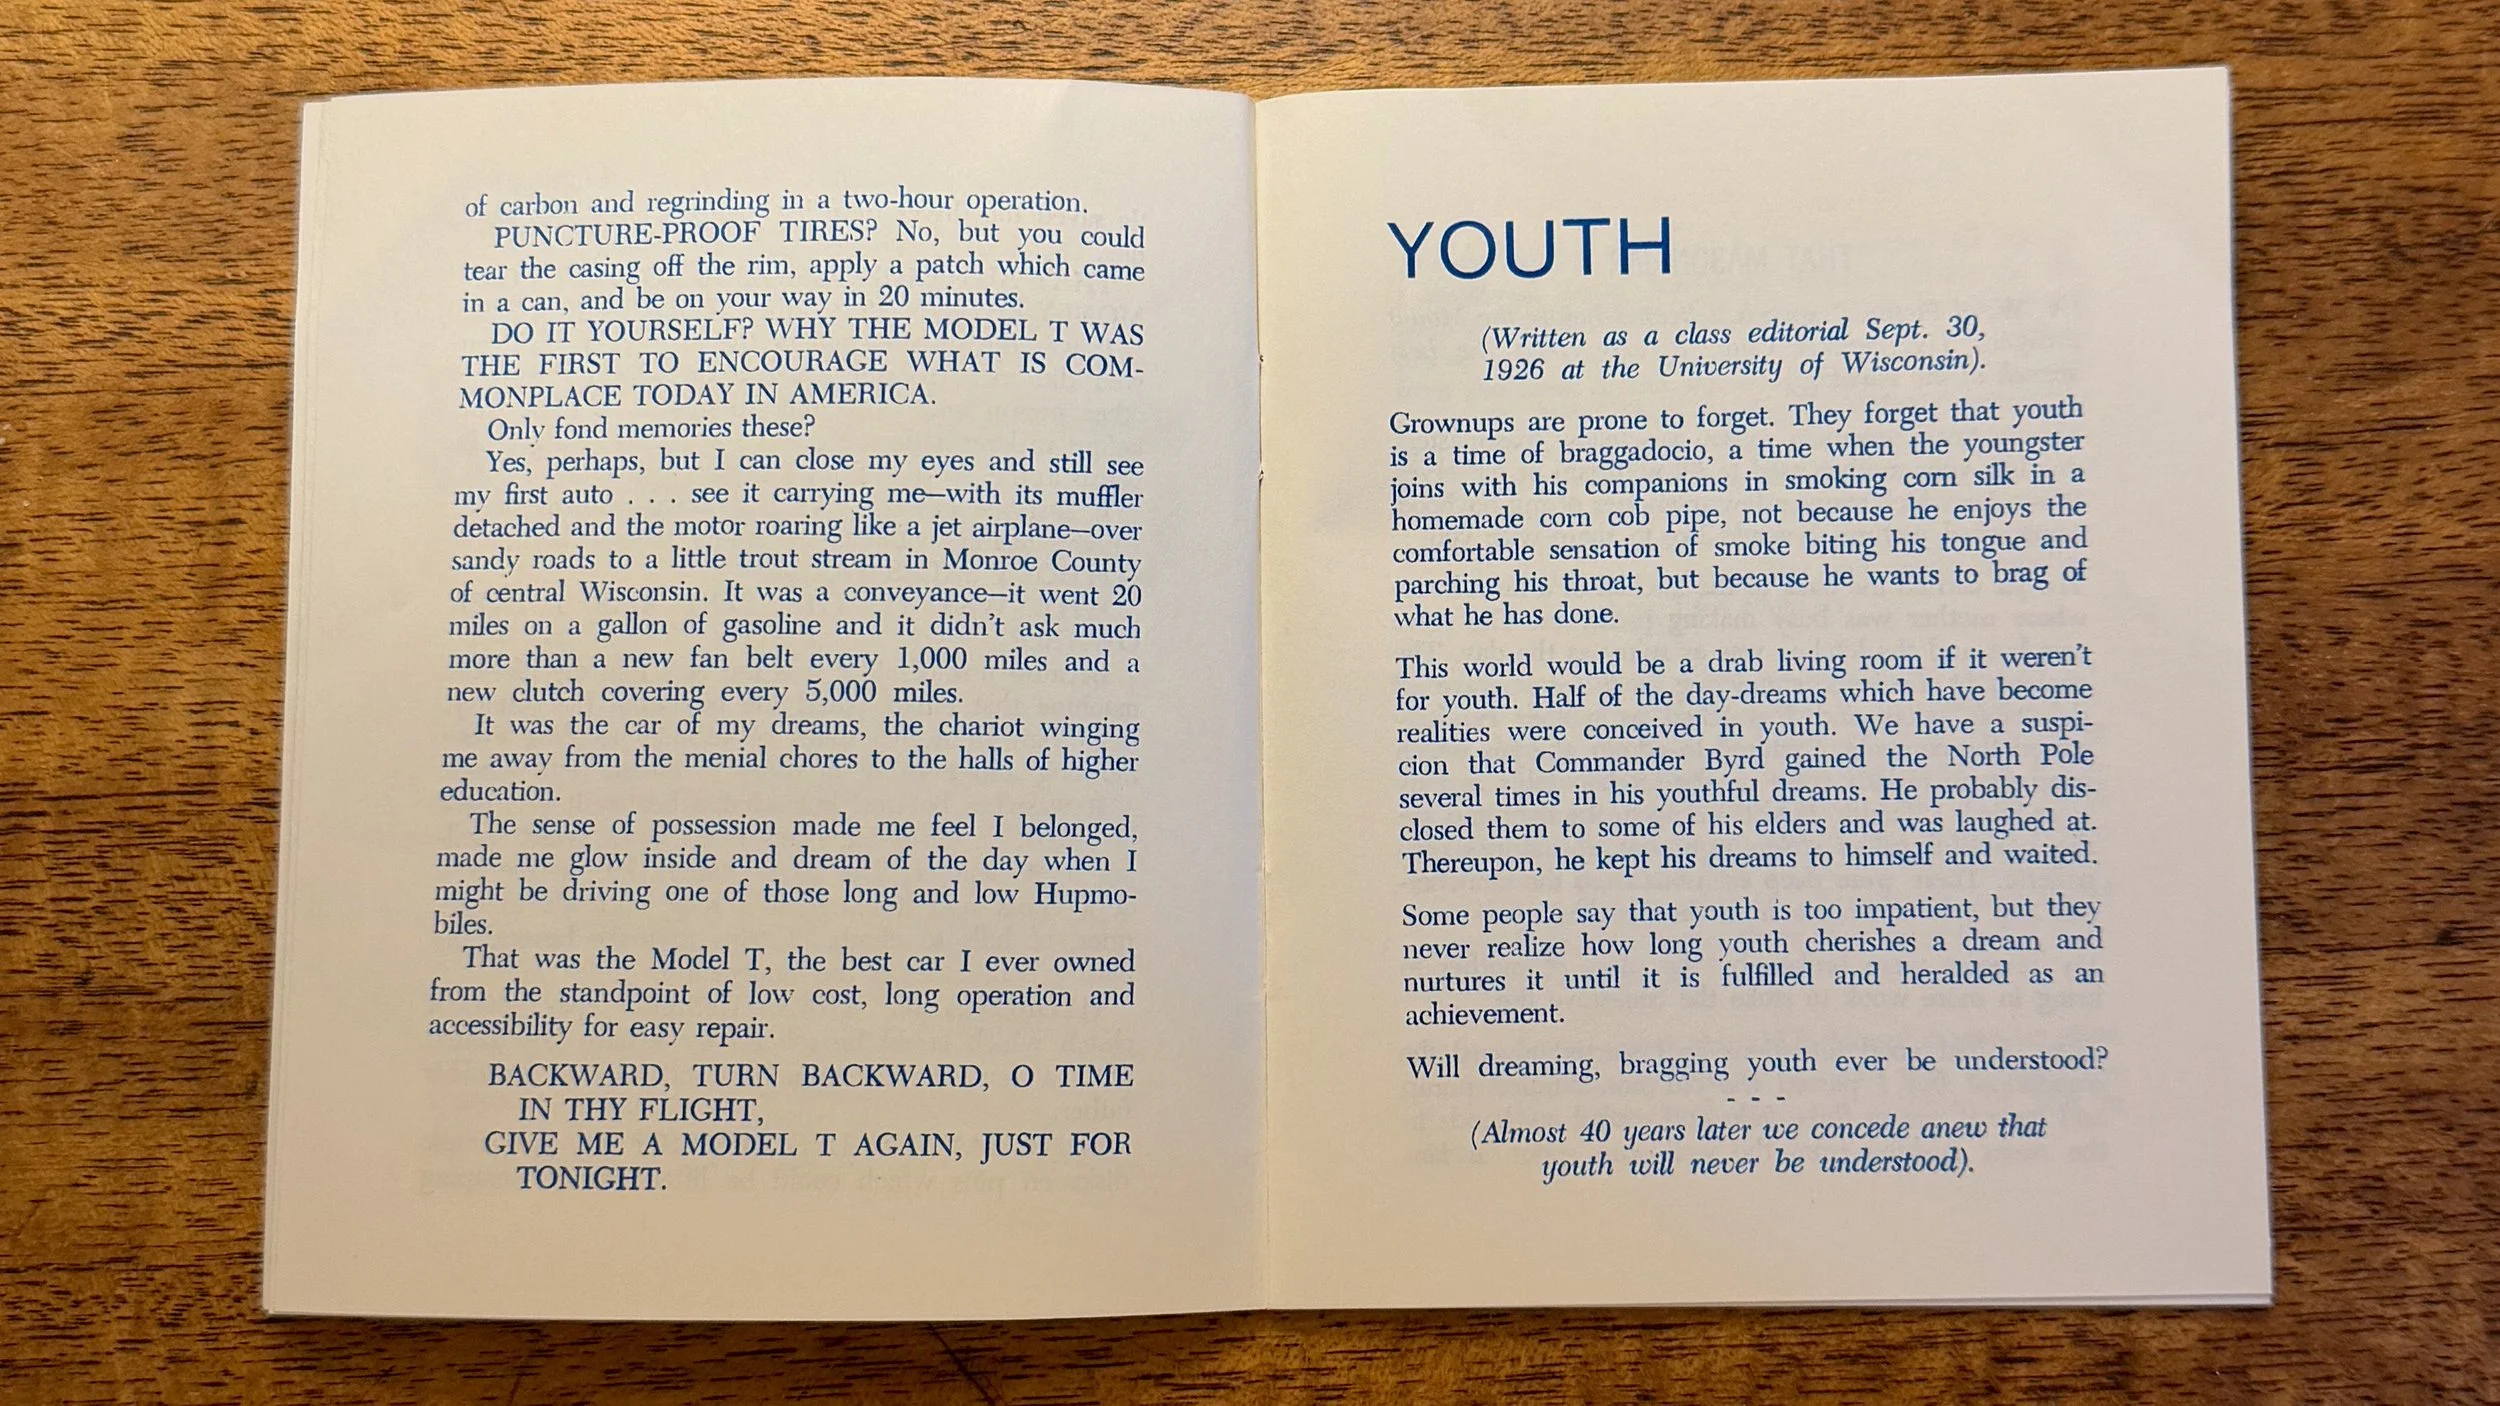 of carbon and regrinding in a two-hour operation.
PUNCTURE-PROOF TIRES? No, but you could
tear the casing off the rim, apply a patch which came
in a can, and be on your way in 20 minutes.
DO IT YOURSELF? WHY THE MODEL T WAS
THE FIRST TO ENCOURAGE WHAT IS COM-
MONPLACE TODAY IN AMERICA.
Only fond memories these?
Yes, perhaps, but I can close my eyes and still see
my first auto . . . see it carrying me—with its muffler
detached and the motor roaring like a jet airplane—over
sandy roads to a little trout stream in Monroe County
of central Wisconsin. It was a conveyance—it went 20
miles on a gallon of gasoline and it didn't ask much
more than a new fan belt every 1,000 miles and a
new clutch covering every 5,000 miles.
It was the car of my dreams, the chariot winging
me away from the menial chores to the halls of higher
education.
The sense of possession made me feel I belonged,
made me glow inside and dream of the day when I
might be driving one of those long and low Hupmo-
biles.
That was the Model T, the best car I ever owned
from the standpoint of low cost, long operation and
accessibility for easy repair.
BACKWARD, TURN BACKWARD, O TIME
IN THY FLIGHT,
GIVE ME A MODEL T AGAIN, JUST FOR
TONIGHT.
YOUTH
(Written as a class editorial Sept. 30,
1926 at the University of Wisconsin).
Grownups are prone to forget. They forget that youth
is a time of braggadocio, a time when the youngster
joins with his companions in smoking corn silk in a
homemade corn cob pipe, not because he enjoys the
comfortable sensation of smoke biting his tongue and
parching his throat, but because he wants to brag of
what he has done.
This world would be a drab living room if it weren't
for youth. Half of the day-dreams which have become
realities were conceived in youth. We have a suspi-
cion that Commander Byrd gained the North Pole
several times in his youthful dreams. He probably dis-
closed them to some of his elders and was laughed at.
Thereupon, he kept his dreams to himself and waited.
Some people say that youth is too impatient, but they
never realize how long youth cherishes a dream and
nurtures it until it is fulfilled and heralded as an
achievement.
Will dreaming, bragging youth ever be understood?
- - -
(Almost 40 years later we concede anew that
youth will never be understood).